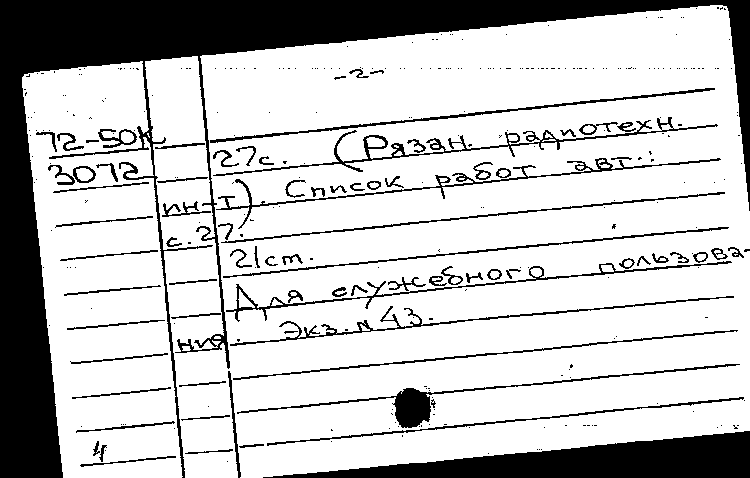 -2-
72-50К
3072
27с. (Рязан. радиотехн.
ин-т). Список работ авт.:
с. 27.
21 cm.
Для служебного пользова-
ния. Экз. N 43.
4